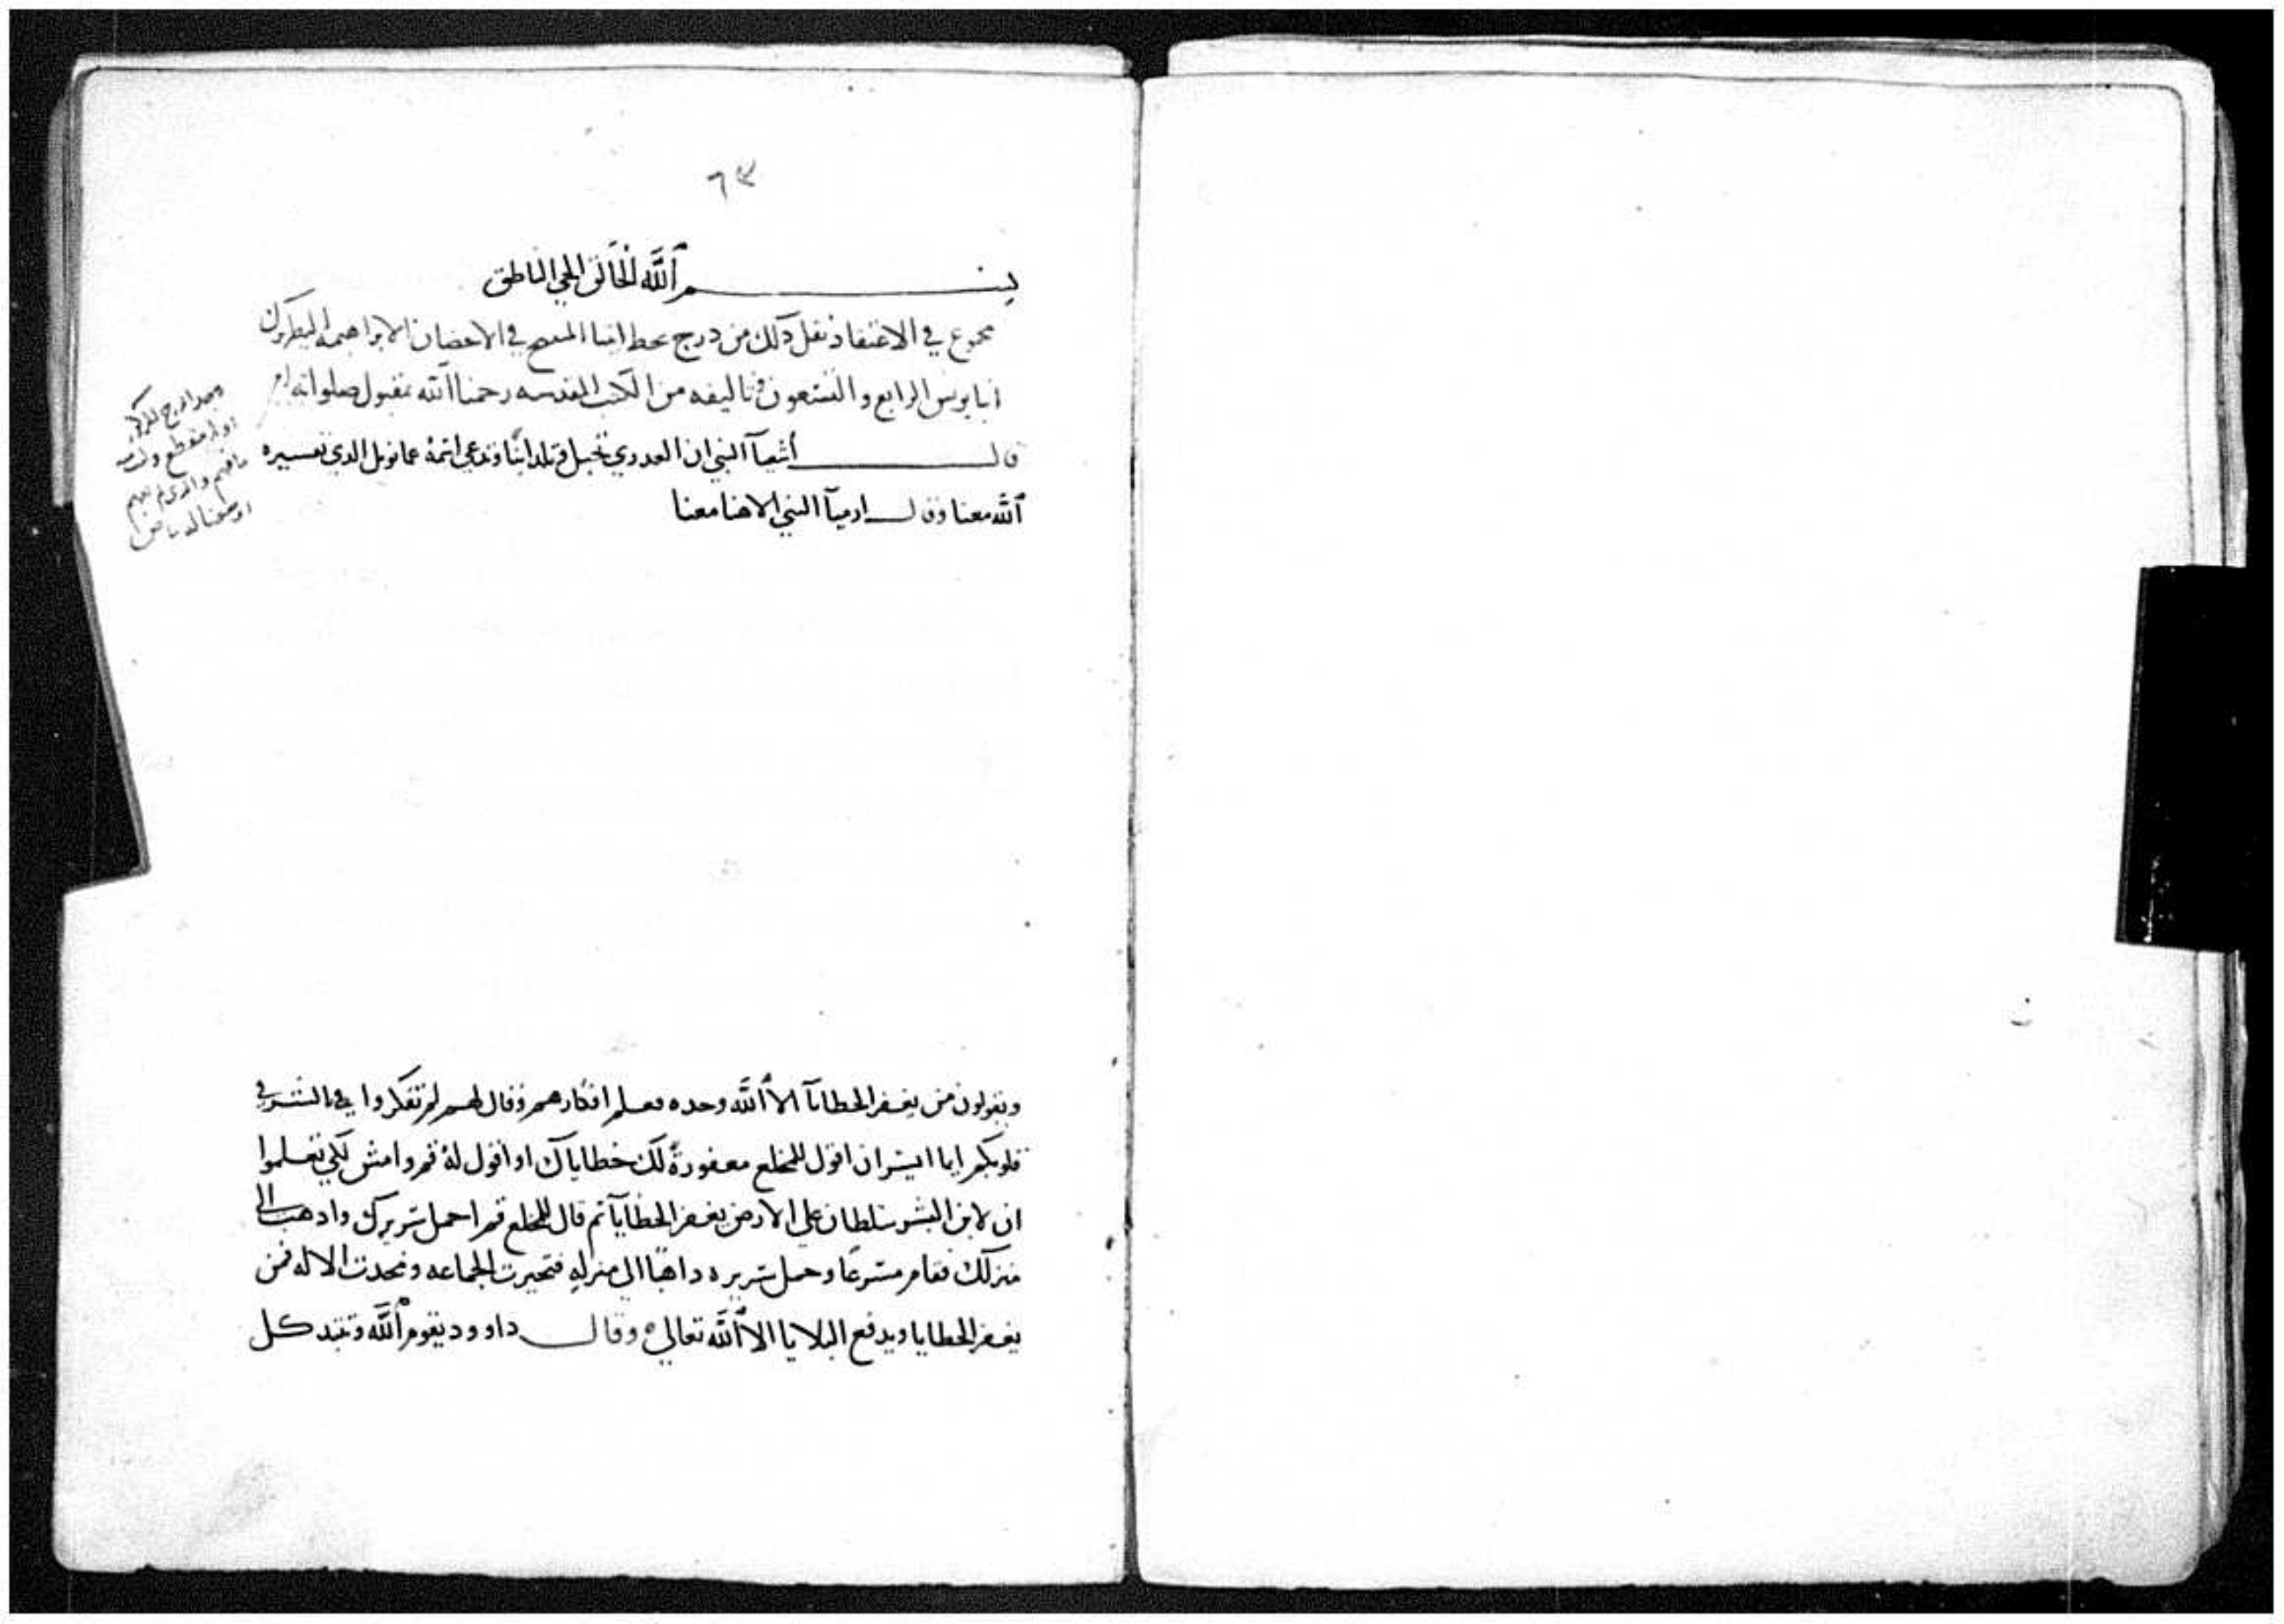 بسم ٱللَّه الخالق الحي الناطق
مجموع في الاعتقاد نقل ذلك من درج بخط انبا المسيح في الاحضان الابراهيميه البطريرك
انبا يونس الرابع والتسعون في تاليفه من الكتب المقدسه رحمنا الله بمقبول صلواته
قال أشعيآ النبي ان العدري تحبل وتلد ابنًا وتدعي اسمهُ عمانويل الدي تفسيره
ٱلله معنا وقال ارميآ النبي الاهنا معنا
اولا منقطع
ويقولون من يغفر الخطايآ الا ٱللَّه وحده فعلم افكارهم وقال لهم لم تفكروا في الشر في
قلوبكم ايما ايسر ان اقول للمخلع مغفورةً لك خطاياك او اقول لهُ قم وامش لكي تعلموا
ان لابن البشر سلطان علي الارض يغفر الخطايآ تم قال للمخلع قم احمل سريرك وادهب الي
منزلك فقام مسرعًا وحمل سريره داهبًا الي منزله فتحيرت الجماعه ومجدت الاله فمن
يغفر الخطايا ويدفع البلايا الا ٱللَّه تعالي ه وقال داوود يقوم ٱللَّه وتتبدد كل